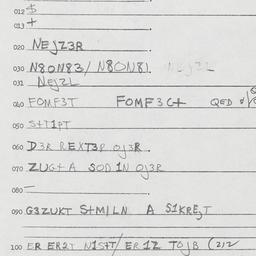 012 $
013 +
020 NEJZ3R
030 N8ON83/ N8ON8).
031 NEJZL
040 FOMF3T FOMF3C+ QED
050 S+T1PT
060 D3R REXT3R OJ3R.
070 ZUG+A SOD 1N OJ3R
080 —
090 G3ZUKT S+M/LN A S1KREJT
100 ER ER2T N1S+T/ ER 1Z TOJB (212